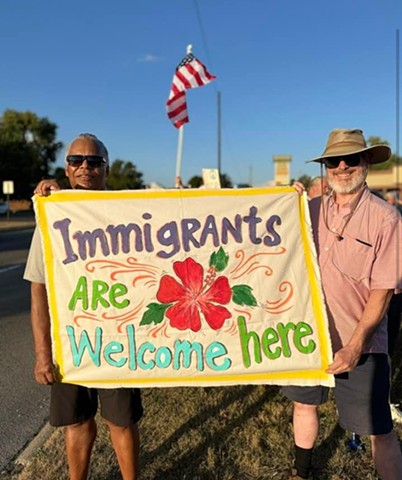 ImmigRANTS
ARe
Welcome here